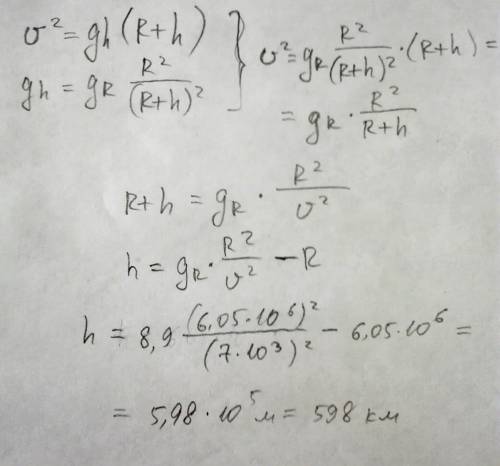 υ² = g_h (R+h) } υ² = g_R R²/(R+h)² · (R+h) =
g_h = g_R R²/(R+h)²
= g_R · R²/(R+h)
R+h = g_R · R²/υ²
h = g_R · R²/υ² − R
h = 8,9 (6,05·10⁶)²/(7·10³)² − 6,05·10⁶ =
= 5,98 · 10⁵ м = 598 км